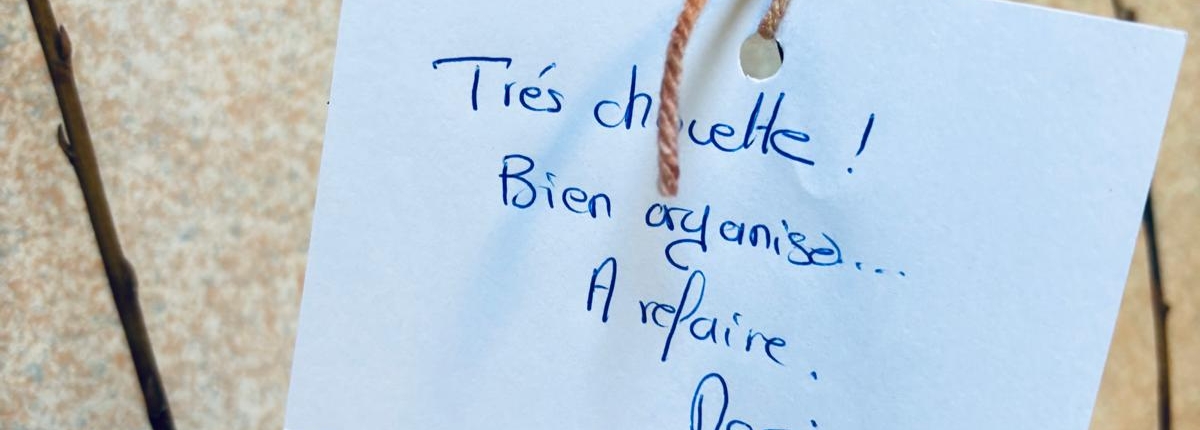 Trés chouette !
Bien organisé...
A refaire.